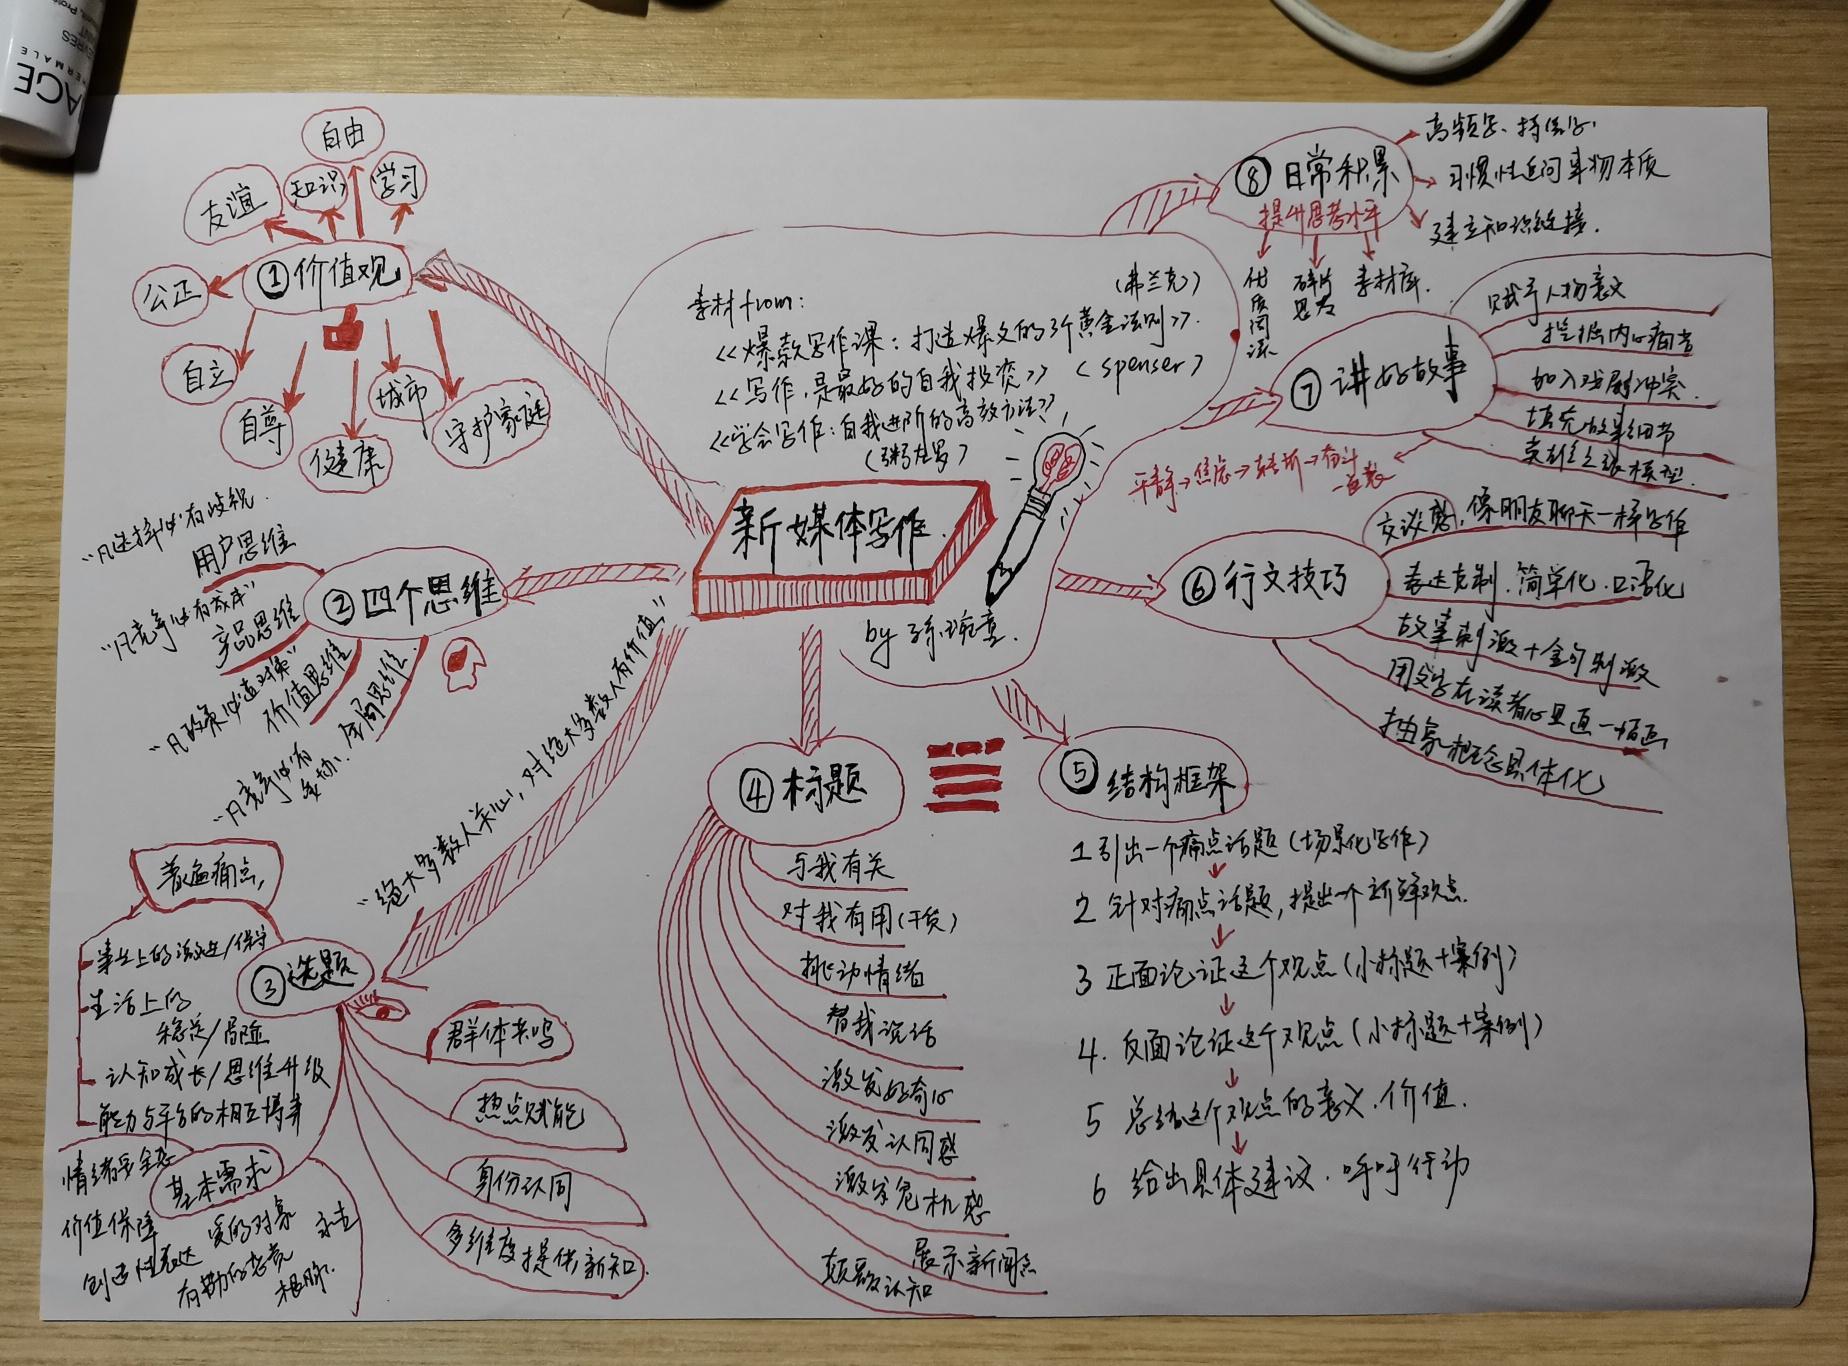 新媒体写作
by
素材from:
(弗兰克)
<<爆款写作课：打造爆文的3个黄金法则>>.
<<写作,是最好的自我投资>> <spenser>
<<学会写作:自我进阶的高效方法>>
(粥左罗)
①价值观
自由
友谊
知识
学习
公正
自立
自尊
健康
城市
守护家庭
②四个思维
"凡选择必有歧视
用户思维
"凡竞争必有成本"
产品思维
"凡政策必遭对策"
价值思维
"凡竞争必有
妥协.
全局思维.
"绝大多数人关心,对绝大多数人有价值"
③选题
普遍痛点,
事业上的激进/保守
生活上的
稳定/冒险
认知成长/思维升级
能力与平台的相互博弈
基本需求
情绪安全感
价值保障
创造性表达
爱的对象
群体共鸣
热点赋能
身份认同
多维度提供新知.
④标题
与我有关
对我有用(干货)
挑动情绪
帮我说话
激发好奇心
激发认同感
激发危机感
展示新闻点
颠覆认知
⑤结构框架
1 引出一个痛点话题(场景化写作)
2 针对痛点话题,提出一个新鲜观点.
3 正面论证这个观点(小标题+案例)
4. 反面论证这个观点(小标题+案例)
5 总结这个观点的意义.价值.
6 给出具体建议.呼吁行动
⑥行文技巧
交谈感,像朋友聊天一样写作
表达克制.简单化.口语化
故事刺激+金句刺激
用文字在读者心里画一幅画
抽象概念具体化
⑦讲好故事
赋予人物意义
挖掘内心痛苦
加入戏剧冲突.
填充故事细节
平静→焦虑→转折→奋斗
⑧日常积累
提升思考水平
高频写.持续写.
习惯性追问事物本质
建立知识链接.
优质阅读
碎片思考
素材库.
AGE